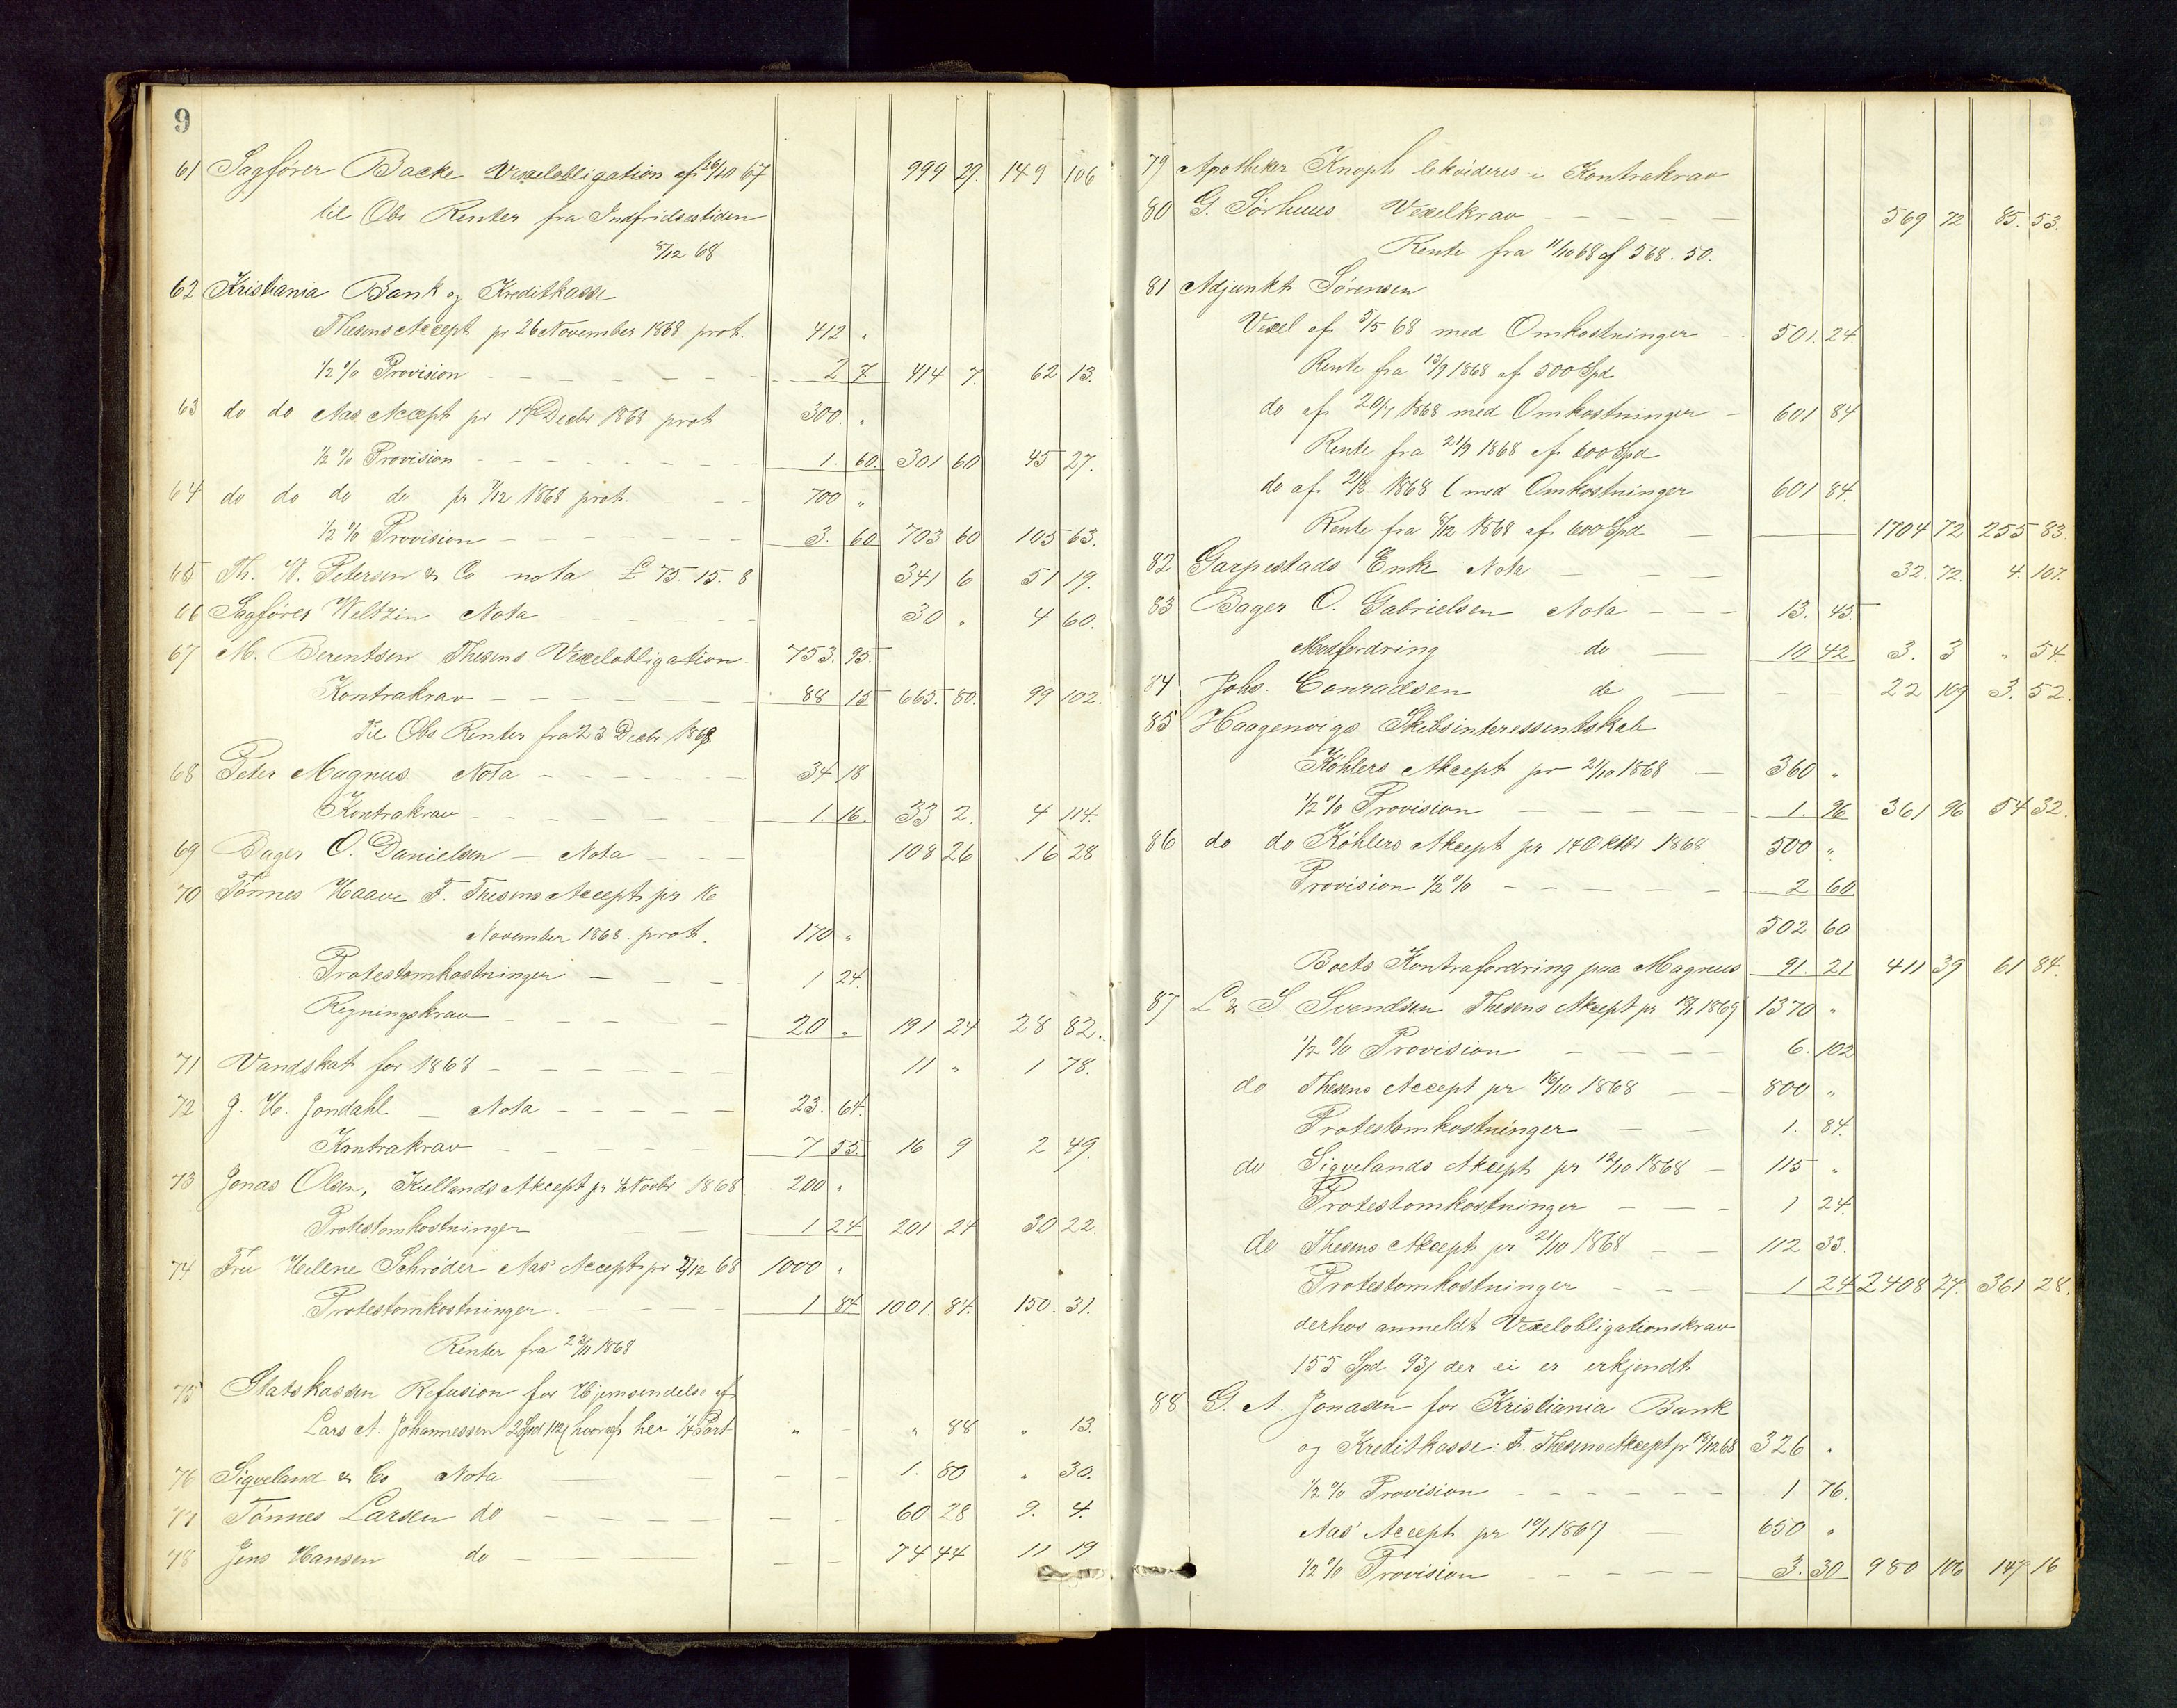 9
61 Sagfører Backe Vexelobligation af 26/10 67 999 29. 149 106
til Obs Renter fra Indfridsestiden
8/12 68
62 Kristiania Bank og Kreditkasse
Thesens Accept pr 26 November 1868 prot. 412 "
1/2 % Provision 2 7. 414 7. 62 13.
63 do do Aas Accept pr 14 Decbr 1868 prot 300. "
1/2 % Provision 1. 60. 301 60 45 27.
64 do do do do pr 7/12 1868 prot. 700 "
1/2 % Provision 3. 60 703 60 105 63.
65 Th. W. Petersen & Co nota £ 75. 15. 8 341 6 51 19.
66 Sagfører Weltzin Nota 30 " 4 60.
67 M. Berentsen Thesens Vexelobligation 753. 95.
Kontrakrav 88 15 665. 80. 99 102.
Til Obs Renter fra 23 Decbr 1868
68 Peter Magnus Nota 34 18
Kontrakrav 1. 16. 33 2. 4 114.
69 Bager O. Danielsen Nota 108 26 16 28
70 Tönnes Haave F. Thesens Accept pr 16
November 1868. prot. 170 "
Protestomkostninger 1 24.
Regningskrav 20 " 191 24 28 82.
71 Vandskat for 1868 11 " 1 78.
72 J. H. Jondahl Nota 23. 64.
Kontrakrav 7 55. 16 9 2 49.
73 Jonas Olsen, Kiellands Akcept pr 4 Novbr 1868 200 "
Protestomkostninger 1 24 201 24 30 22.
74 Fru Helene Schrøder Aas' Accept pr 2/12 68 1000 "
Protestomkostninger. 1 84. 1001. 84. 150. 31.
Renter fra 23/11 1868
75 Statskassen Refusion for Hjemsendelse af
Lars A. Johannessen 2 Spd 112 hvoraf her 1/4 Part " " 88 " 13.
76 Sigveland & Co Nota 1. 80 " 30.
77 Tönnes Larsen do 60 28 9. 4.
78 Jens Hansen do 74 44 11 19
79 Apotheker Knoph likvideres i Kontrakrav
80 G. Sörhuus Vexelkrav 569 72 85. 53.
Rente fra 11/10 68 af 568. 50.
81 Adjunkt Sørensen
Vexel af 3/5 68 med Omkostninger 501. 24.
Rente fra 13/9 1868 af 500 Spd
do af 20/7 1868 med Omkostninger 601 84
Rente fra 21/9 1868 af 600 Spd
do af 21/8 1868 ( med Omkostninger 601 84.
Rente fra 8/12 1868 af 600 Spd 1704 72 255 83.
82 Garpestads Enke Nota 32. 72. 4. 107.
83 Bager O. Gabrielsen Nota 13. 45.
Modfordring do 10 42 3. 3 " 54.
84 Johs. Conradsen do 22 109 3. 52.
85 Haagenvigs Skibsinteressentskab
Köhlers Akcept pr 21/10 1868 360 "
1/2 % Provision 1. 96 361 96 54 32.
86 do do Köhlers Akcept pr 14 Oktbr 1868 500 "
Provision 1/2 % 2 60
502 60
Boets Kontrafordring paa Magnus 91. 21 411 39 61 84.
87 L & S. Svendsen Thesens Akcept pr 1869 1370 "
1/2 % Provision 6. 102
do Thesens Accept pr 16/10 1868 800 "
Protestomkostninger 1. 84.
do Sigvelands Akcept pr 12/10 1868 115 "
Protestomkostninger 1 24.
do Thesens Akcept pr 21/10 1868 112 33.
Protestomkostninger 1 24 2408 27. 361 28.
derhos anmeldt Vexelobligationskrav
155 Spd 93 der ei er erkjendt
88 G. A. Jonasen for Kristiania Bank
og Kreditkasse: F. Thesens Akcept pr 15/12 68 326 "
1/2 % Provision 1 76.
Aas' Accept pr 1869 650 "
1/2 % Provision 3. 30 980 106 147 16